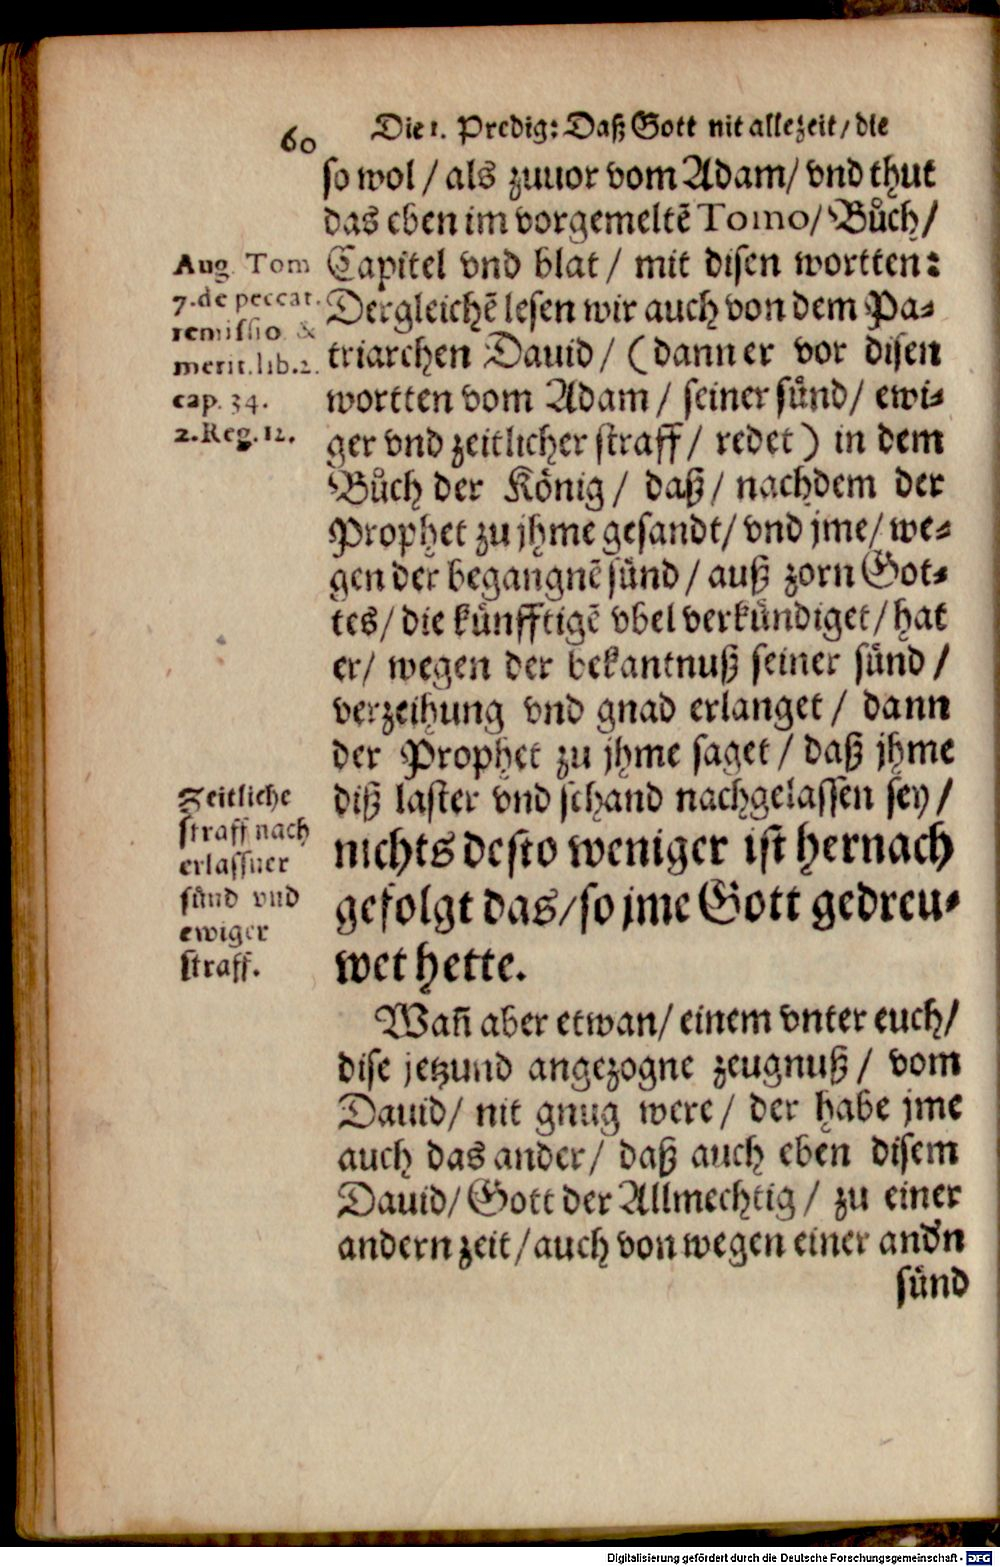 60
Die 1. Predig: Daß Gott nit allezeit/ die
so wol / als zuuor vom Adam/ vnd thut
das eben im vorgemeltẽ Tomo/ Bůch/
Capitel vnd blat / mit disen wortten:
Dergleichẽ lesen wir auch von dem Pa-
triarchen Dauid / (dann er vor disen
wortten vom Adam / seiner sünd/ ewi-
ger vnd zeitlicher straff / redet) in dem
Bůch der König / daß / nachdem der
Prophet zu jhme gesandt/ vnd jme/ we-
gen der begangnẽ sünd / auß zorn Got-
tes/ die künfftigẽ vbel verkündiget / hat
er/ wegen der bekantnuß seiner sünd /
verzeihung vnd gnad erlanget / dann
der Prophet zu jhme saget / daß jhme
diß laster vnd schand nachgelassen sey /
nichts desto weniger ist hernach
gefolgt das/ so jme Gott gedreu-
wet hette.
Wañ aber etwan/ einem vnter euch/
dise jetzund angezogne zeugnuß / vom
Dauid/ nit gnug were / der habe jme
auch das ander / daß auch eben disem
Dauid/ Gott der Allmechtig / zu einer
andern zeit / auch von wegen einer andn
sünd
Aug. Tom
7. de peccat.
remissio &
merit. lib. 2.
cap. 34.
2. Reg. 12.
Zeitliche
straff nach
erlassner
sünd vnd
ewiger
straff.
Digitalisierung gefördert durch die Deutsche Forschungsgemeinschaft - DFG